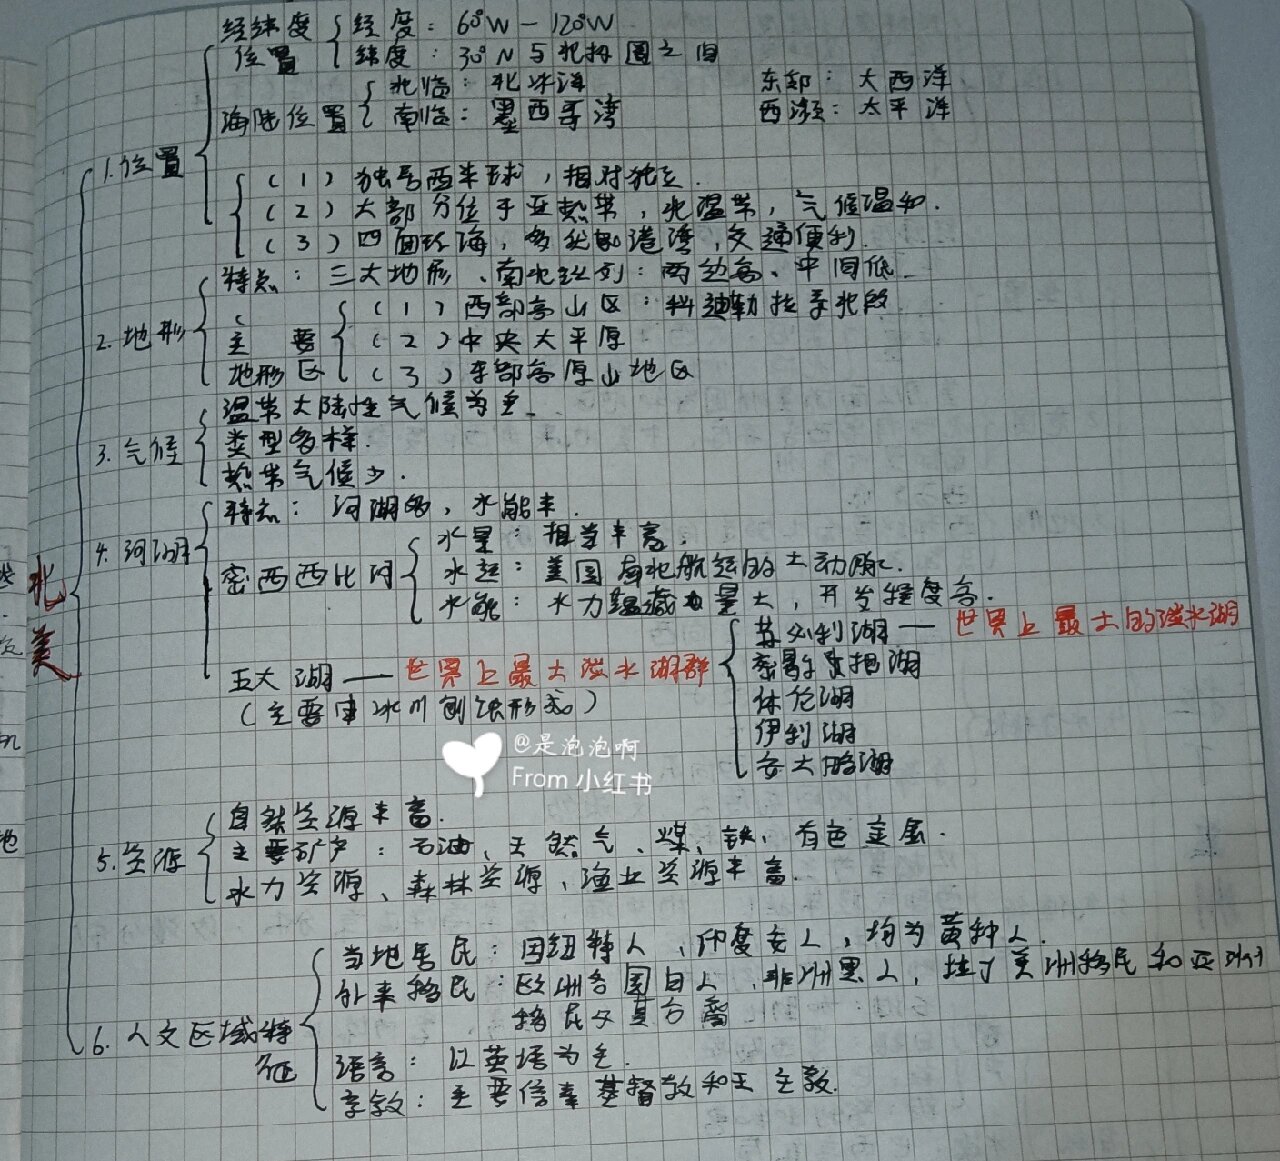 经纬度 经度：60°W － 120°W
位置 纬度：30°N 与北极圈之间
北临：北冰洋 东部：大西洋
海陆位置 南临：墨西哥湾 西濒：太平洋
1.位置
(1) 独居西半球，相对独立.
(2) 大部分位于亚热带，北温带，气候温和.
(3) 四面环海，多优良港湾，交通便利.
特点：三大地形、南北纵列：两边高、中间低.
(1) 西部高山区：科迪勒拉系北段
2.地形 主要 (2) 中央大平原
地形区 (3) 东部高原山地区
温带大陆性气候为主.
3.气候 类型多样.
热带气候少.
特点：河湖多，水能丰.
4.河湖 水量：相当丰富.
密西西比河 水运：美国南北航运的大动脉.
水能：水力蕴藏量大，开发程度高.
苏必利湖 — 世界上最大的淡水湖
五大湖 — 世界上最大淡水湖群 密歇根湖
(主要由冰川刨蚀形成) 休伦湖
伊利湖
安大略湖
北美
@是泡泡啊
From 小红书
自然资源丰富.
5.资源 主要矿产：石油、天然气、煤、铁、有色金属.
水力资源、森林资源、渔业资源丰富.
当地居民：因纽特人、印度安人，均为黄种人.
外来移民：欧洲各国白人、非洲黑人，拉丁美洲移民和亚洲
移民及其后裔
6.人文区域特
征 语言：以英语为主.
宗教：主要信奉基督教和天主教.